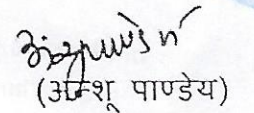 (अन्शू पाण्डेय)